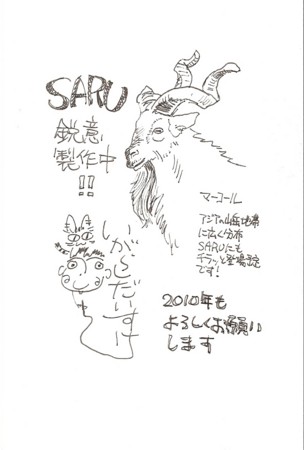 SARU
鋭意
製作中
!!
マーコール
アジアの山岳地帯
に広く分布
SARUにも
チラッと登場予定
です!
いがらしだいすけ
2010年も
よろしくお願い
します